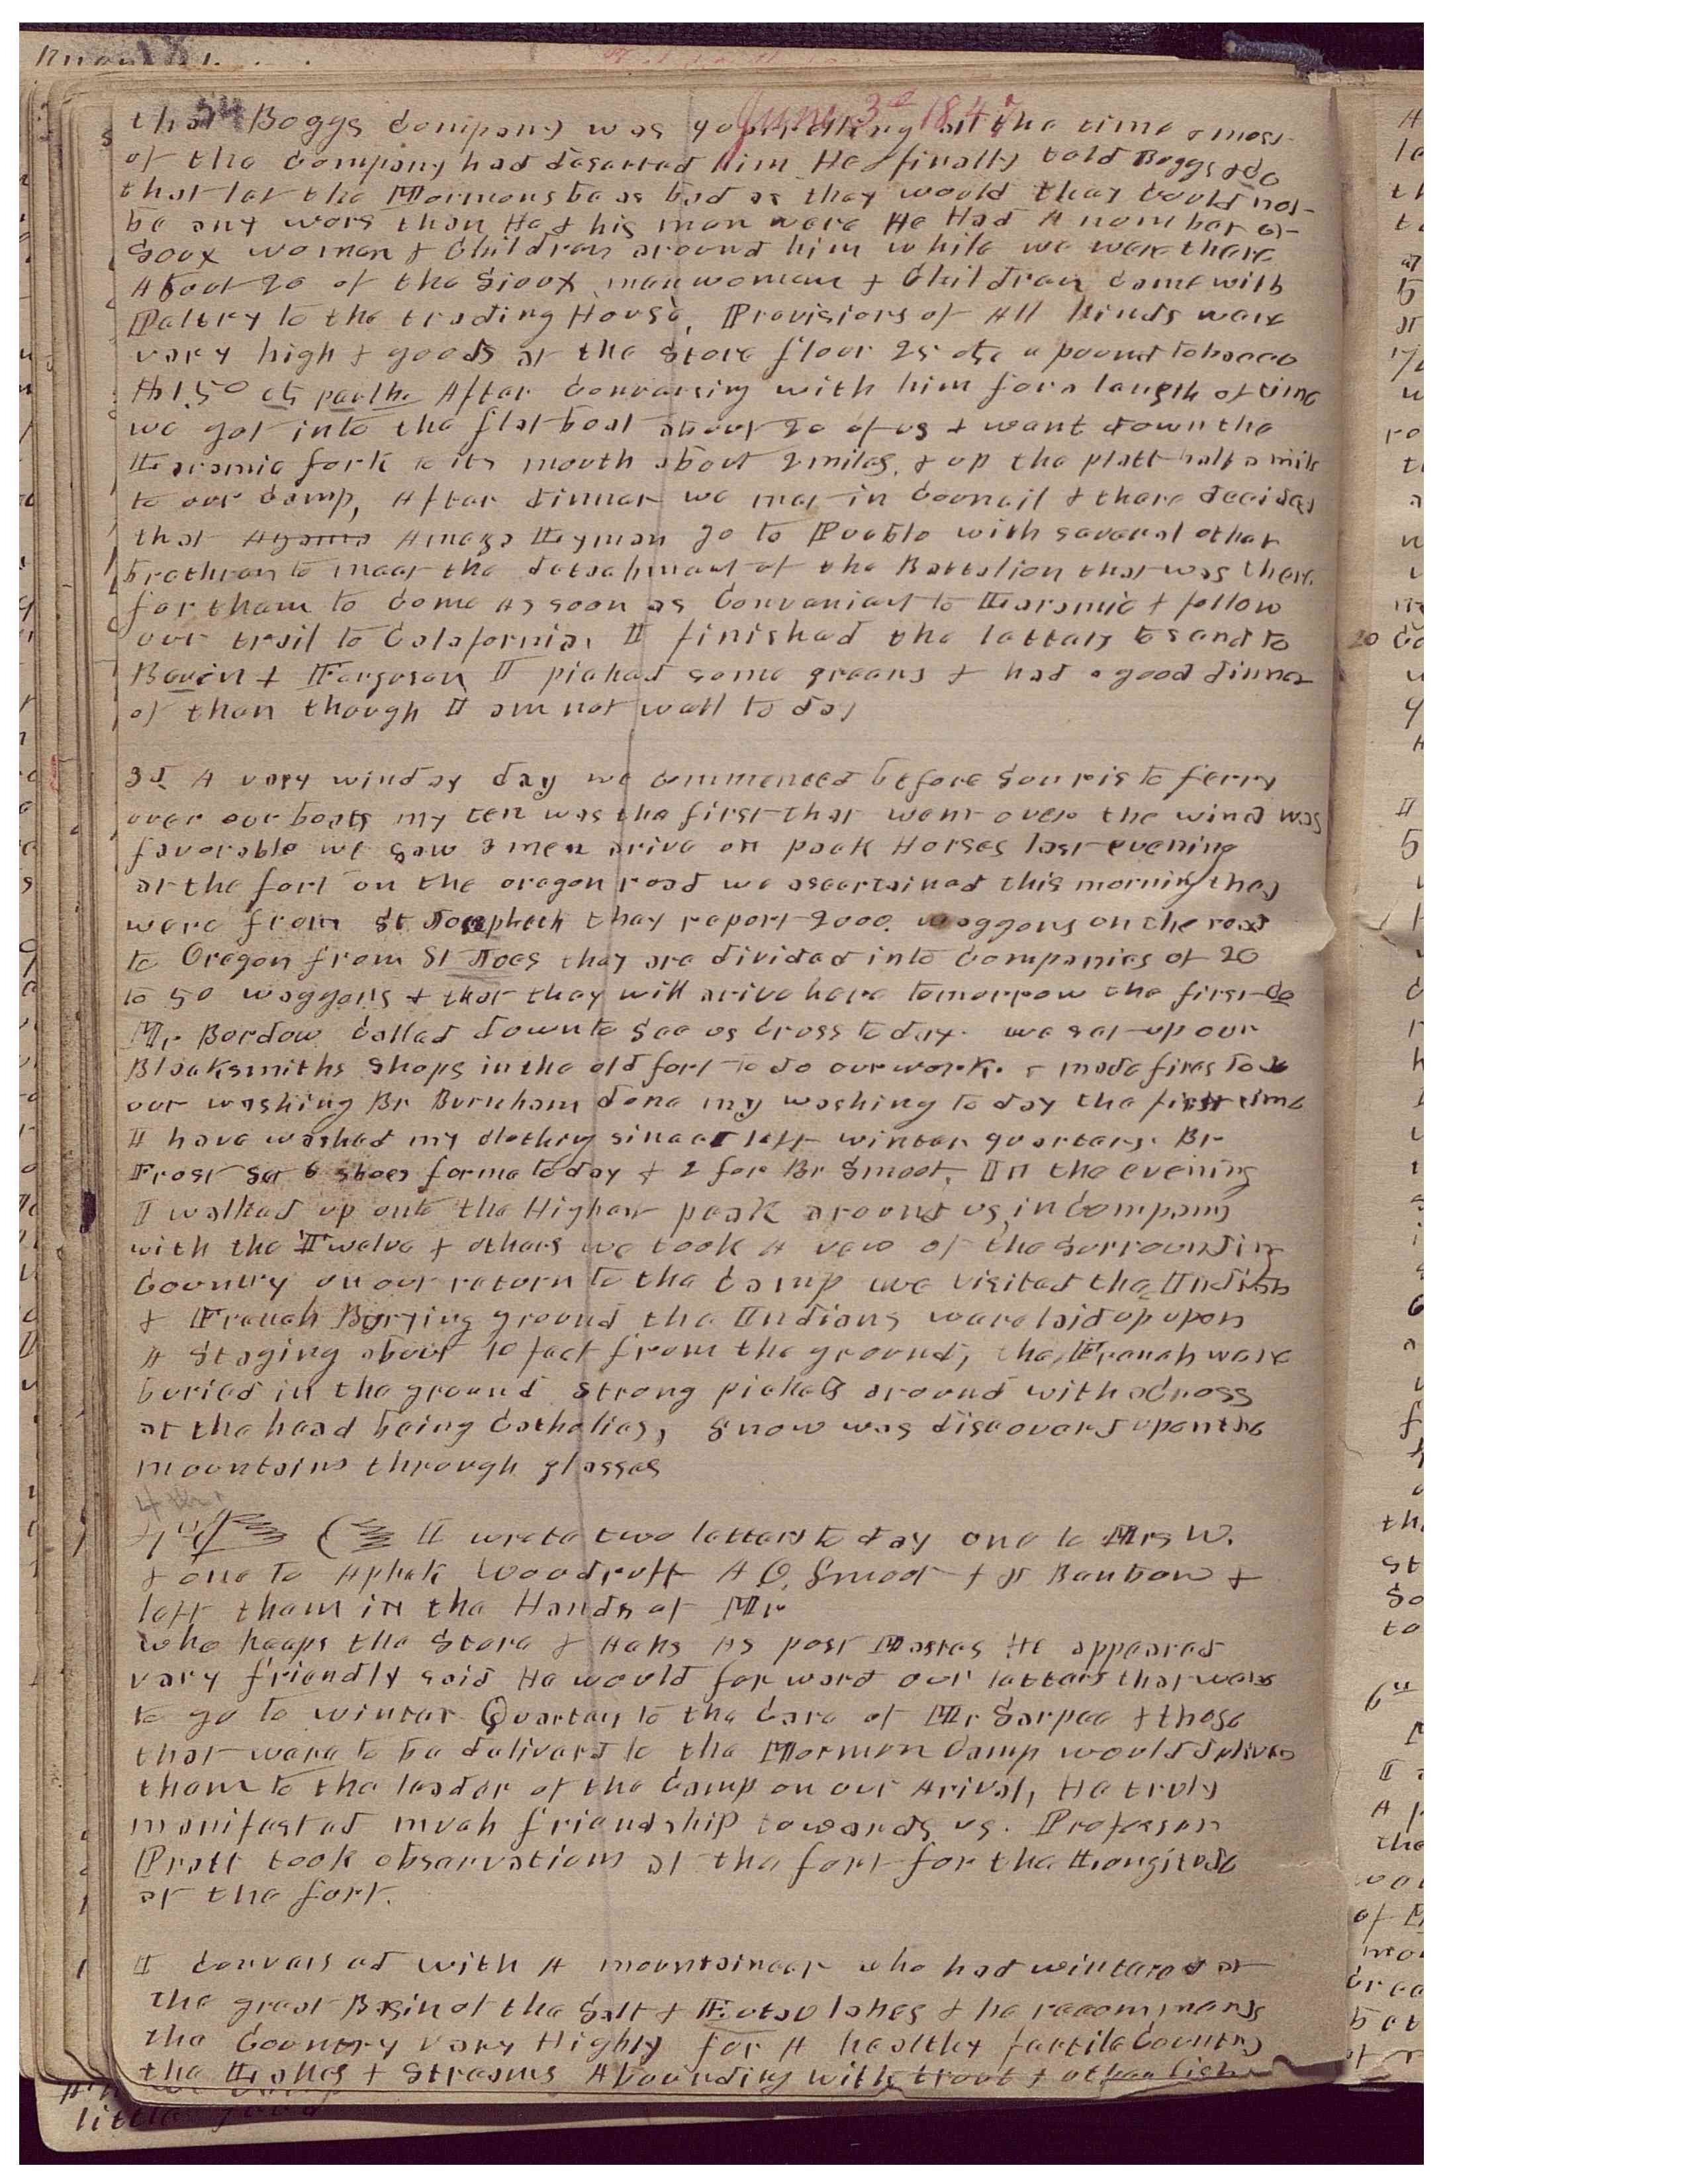 June 3d 1847
that Boggs Company was quarreling all the time & most
of the Company had desarted him He finally told Boggs & Co
that let the Mormons be as bad as they would they Could not
be any wors than He & his men were He Had A number of
Soox women & Children around him while we were there
About 20 of the Sioux men women & Children Came with
Peltry to the trading House, Provisions of All kinds were
very high & goods at the Store flour 25 cts a pound tobacco
$1.50 cts per lb. After Conversing with him for a length of time
we got into the flat boat about 20 of us & went down the
Laramie fork to its mouth about 2 miles. & up the platt half a mile
to our Camp, After dinner we met in Council & there decided
that Amaza Lyman go to Pueblo with several other
brethren to meet the detachment of the Battalion that was there
for them to Come as soon as Convenient to Laramie & follow
our trail to Calafornia, I finished the letters to send to
Beven & Ferguson I picked some greens & had a good dinner
of them though I am not well to day
3d A very winday day we commenced before Sunris to ferry
over our boats my ten was the first that went over the wind was
favorable we saw 3 men arive on pack Horses last evening
at the fort on the oregon road we ascertained this morning they
were from St Josepheth they report 2000. waggons on the road
to Oregon from St Joes they are divided into Companies of 20
to 50 waggons & that they will arive here tomorrow the first Co
Mr Bordow Called down to See us Cross to day. we set up our
Blacksmiths Shops in the old fort to do our work. & made fires to do
our washing Br Burnham done my washing to day the first time
I have washed my clothing since I left winter quarters. Br
Frost Set 6 shoes for me to day & 2 for Br Smoot. In the evening
I walked up onto the Highest peak around us, in Company
with the Twelve & others we took A vew of the Surroundin
Country on our return to the Camp we visited the Indian
& French Burying ground the Indians were laid up upon
A Staging about 10 feet from the ground, the French were
buried in the ground strong pickets around with a Cross
at the head being Catholics, Snow was discoverd upon the
mountains through glasses
4th
I wrote two letters to day one to Mrs W.
& one to Aphek Woodruff A. O. Smoot & J Benbow &
left them in the Hands of Mr
who keeps the Store & Acts As post Master He appeared
very friendly said He would forward our letters that were
to go to winter Quarters to the Care of Mr Sarpee & those
that were to be deliverd to the Mormon Camp would deliver
them to the leader of the Camp on our Arival, He truly
manifested much friendship towards us. Professor
Pratt took observations at the fort for the Longitude
at the fort.
I Conversed with A mountaineer who had wintered at
the great Basin of the Salt & Eutaw lakes & he recommends
the Country very Highly for A healthy fertile Country
the Lakes & Streams Abounding with trout & other fish